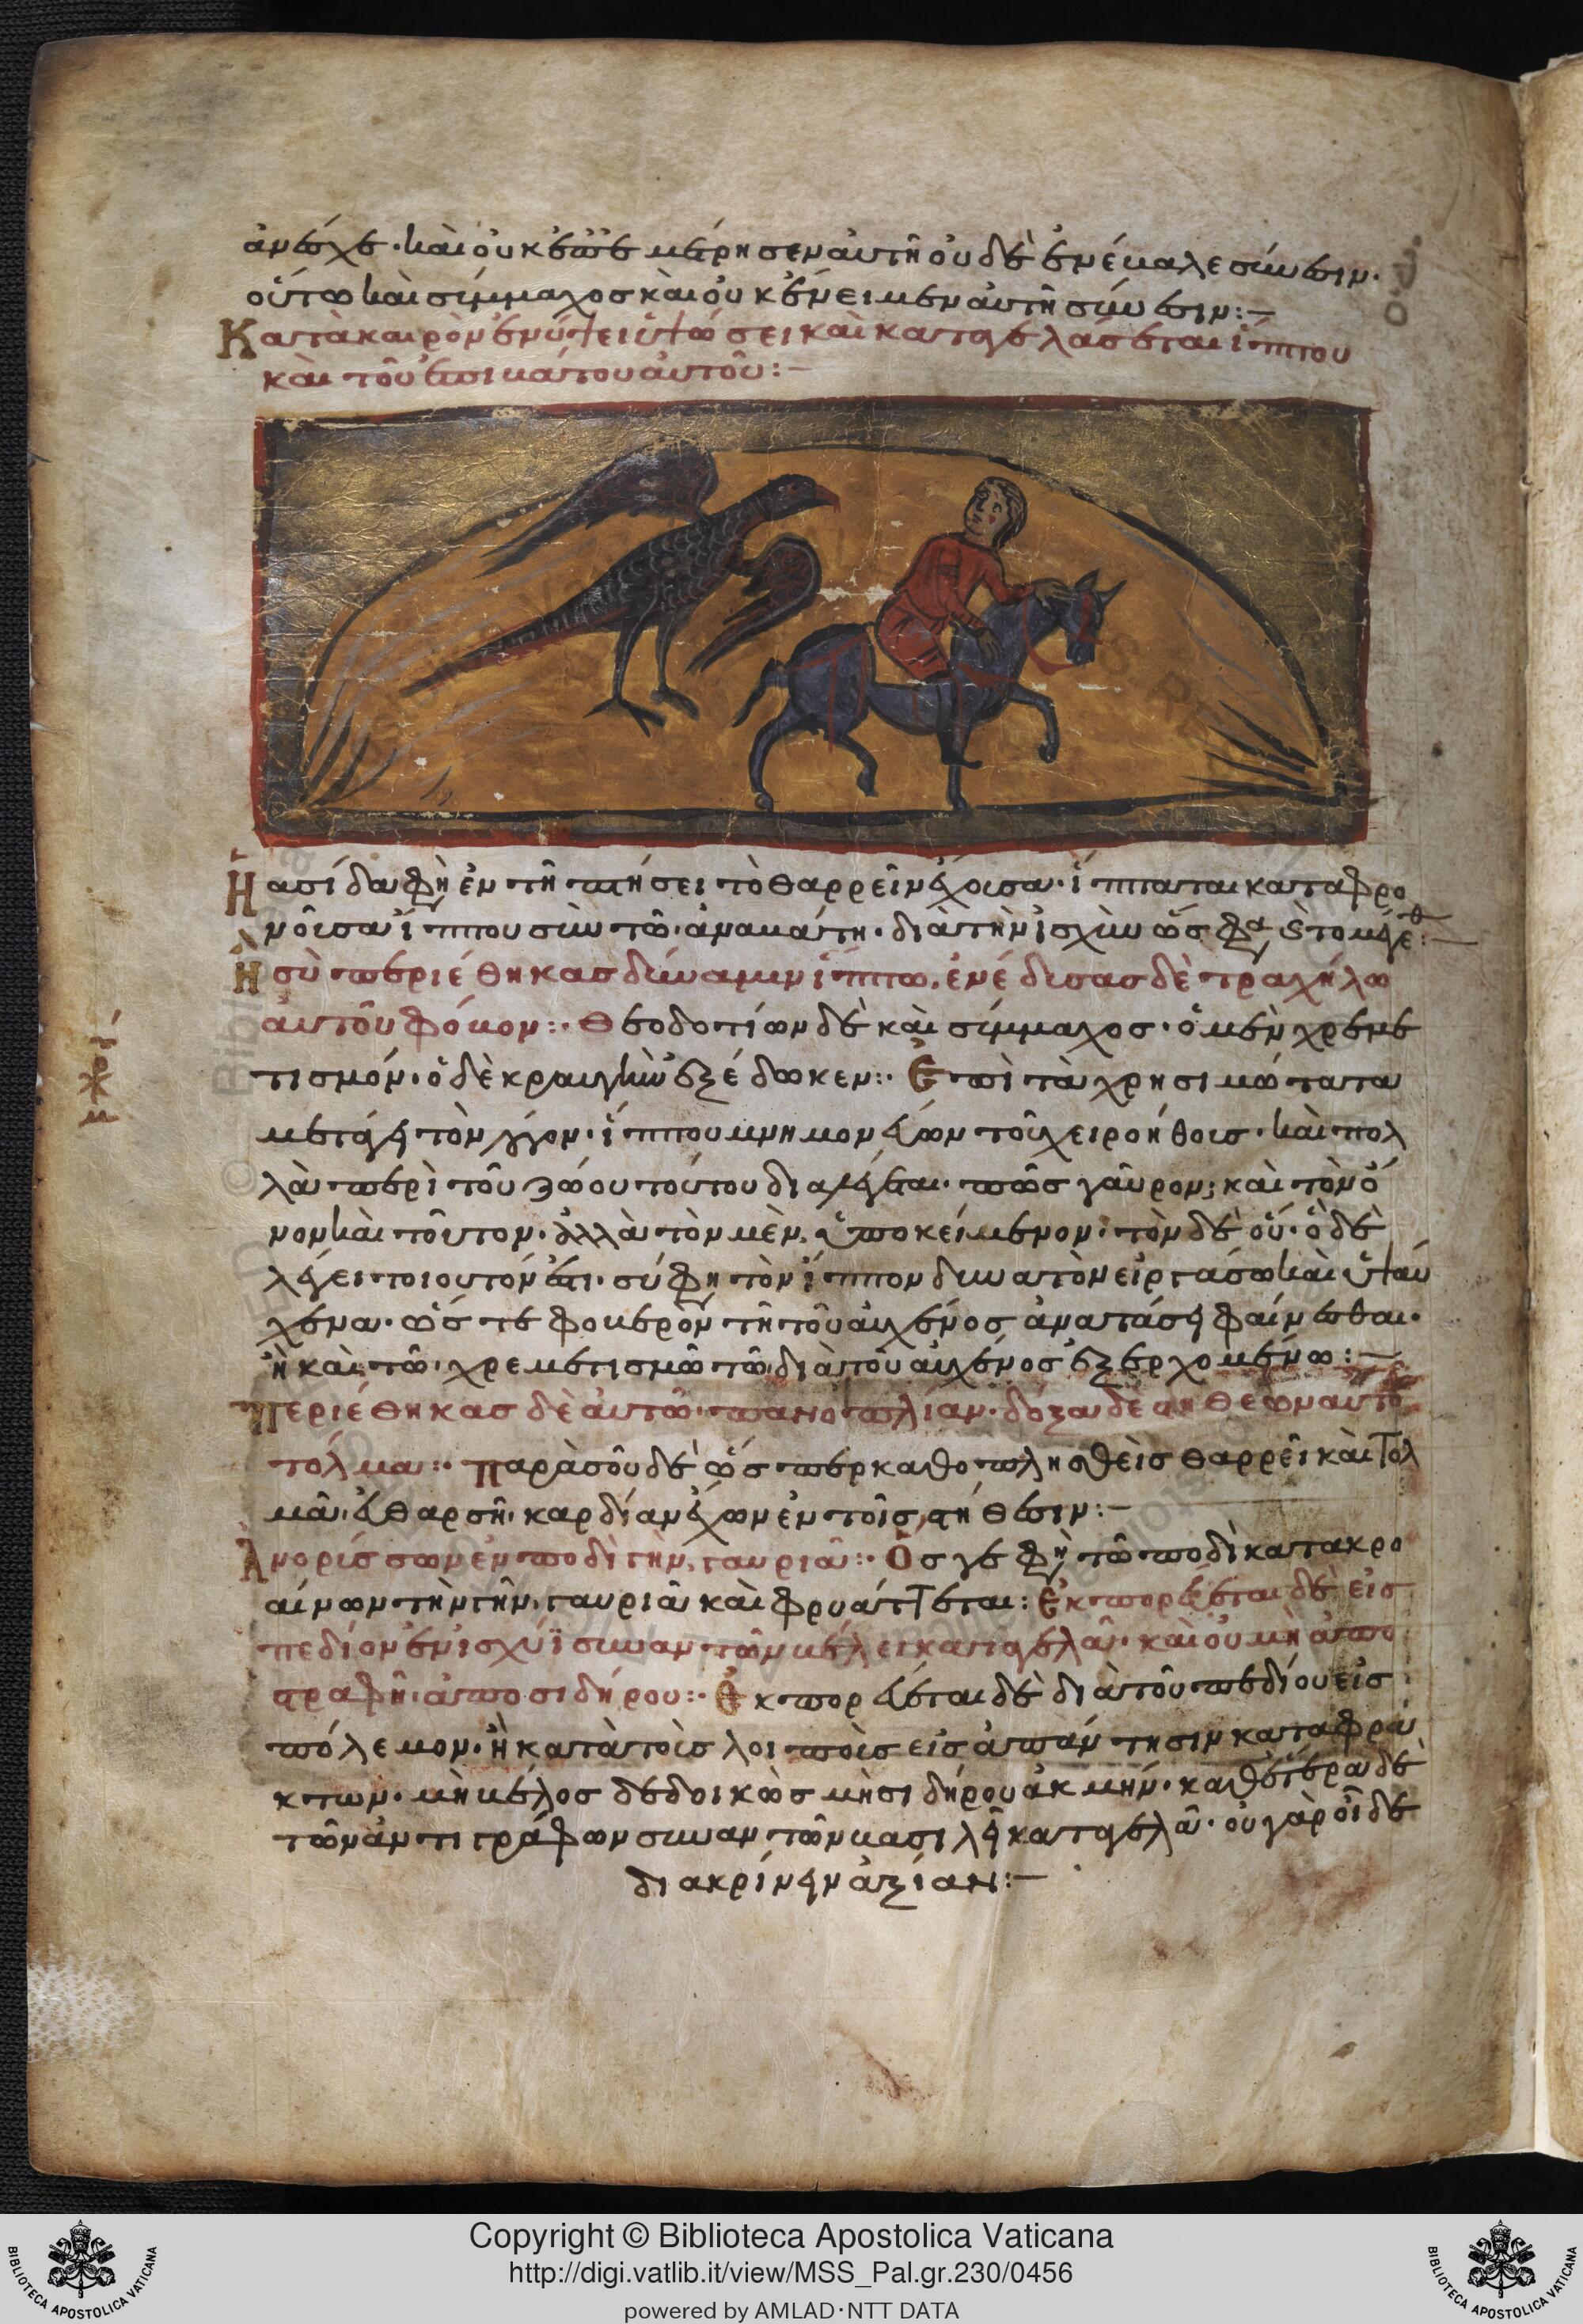 ἀνέσχε· καὶ οὐκ ἐπεμέτρησεν αὐτῇ οὐδὲ ἐνέμαλε σύνεσιν·
οὕτω καὶ σύμμαχος καὶ οὐκ ἔνειμεν αὐτῇ σύνεσιν:–
Κατὰ καιρὸν ἐν ὕψει ὑψώσει καὶ καταγελάσεται ἵππου
καὶ τοῦ ἐπιβάτου αὐτοῦ:–
Ἡ ασίδα φη ἐν τῇ πτήσει τὸ θαρρεῖν ἔχουσα· ἵπταται καταφρο
νοῦσα ἵππου σὺν τῷ ἀναβάτῃ· διὰ τὴν ἰσχὺν
Ἢ σὺ περιέθηκας δύναμιν ἵππω, ἐνέδυσας δὲ τραχήλω
αὐτοῦ φόβον:· Θεοδοτίων δὲ καὶ σύμμαχος· ὁ μὲν χρεμε
τισμόν· ὁ δὲ κραυγὴν ἐξέδωκεν:· Ἐπὶ τὰ χρησιμώτατα
μετάγει τὸν λόγον· ἵππου μνημονεύων τοῖς χειροήθοις· καὶ πολ
λὰ περὶ τοῦ ζώου τούτου διαλέγεται· πῶς γαῦρον; καὶ τὸν ὄ
νον καὶ τοῦτον· ἀλλὰ τὸν μὲν, ὑποκείμενον· τὸν δὲ οὔ· ὁ δὲ
λέγει τοιοῦτόν ἐστι· σύ φη τὸν ἵππον δυνατὸν εἰργάσω καὶ ὑψαύ
χενα· ὥστε φοβερὸν τῇ τοῦ αὐχένος ἀνατάσει φαίνεσθαι·
ἢ καὶ τῷ χρεμετισμῷ τῷ διὰ τοῦ αὐχένος ἐξερχομένω:–
Περιέθηκας δὲ αὐτῷ πανοπλίαν· δόξαν δὲ στηθέων αὐτοῦ
τόλμα:· Παρὰ σοῦ δὲ ὥσπερ καθοπλησθεὶς θαρρεῖ καὶ τολ
μᾶ· εὐθαρσῆ καρδίαν ἔχων ἐν τοῖς στήθεσιν:–
Ἀνορίσσων ἐν ποδὶ γῆν, γαυριᾶ:· Ὅς γε φη τῷ ποδὶ κατακρο
αίνων τὴν γῆν, γαυριᾶ καὶ φρυάττεται: Ἐκπορεύεται δὲ εἰς
πεδίον ἐν ἰσχύϊ συναντῶν βέλει καταγελᾶ· καὶ οὐ μὴ ἀπο
στραφῇ ἀπὸ σιδήρου:· Ἐκπορεύεται δὲ διὰ τοῦ πεδίου εἰς
πόλεμον· ἢ κατὰ τοὺς λοιποὺς εἰς ἀπάντησιν καταφρά
κτων· μὴ βέλος δεδοικὼς μὴ σιδήρου ἀκμήν· καθ' ἕτερα δὲ
τῶν ἀντιγράφων συναντῶν βασιλεῖ καταγελᾶ· οὐ γὰρ οἶδε
διακρίνειν ἀξίαν:–
Copyright © Biblioteca Apostolica Vaticana
http://digi.vatlib.it/view/MSS_Pal.gr.230/0456
powered by AMLAD·NTT DATA
BIBLIOTECA APOSTOLICA VATICANA
BIBLIOTECA APOSTOLICA VATICANA